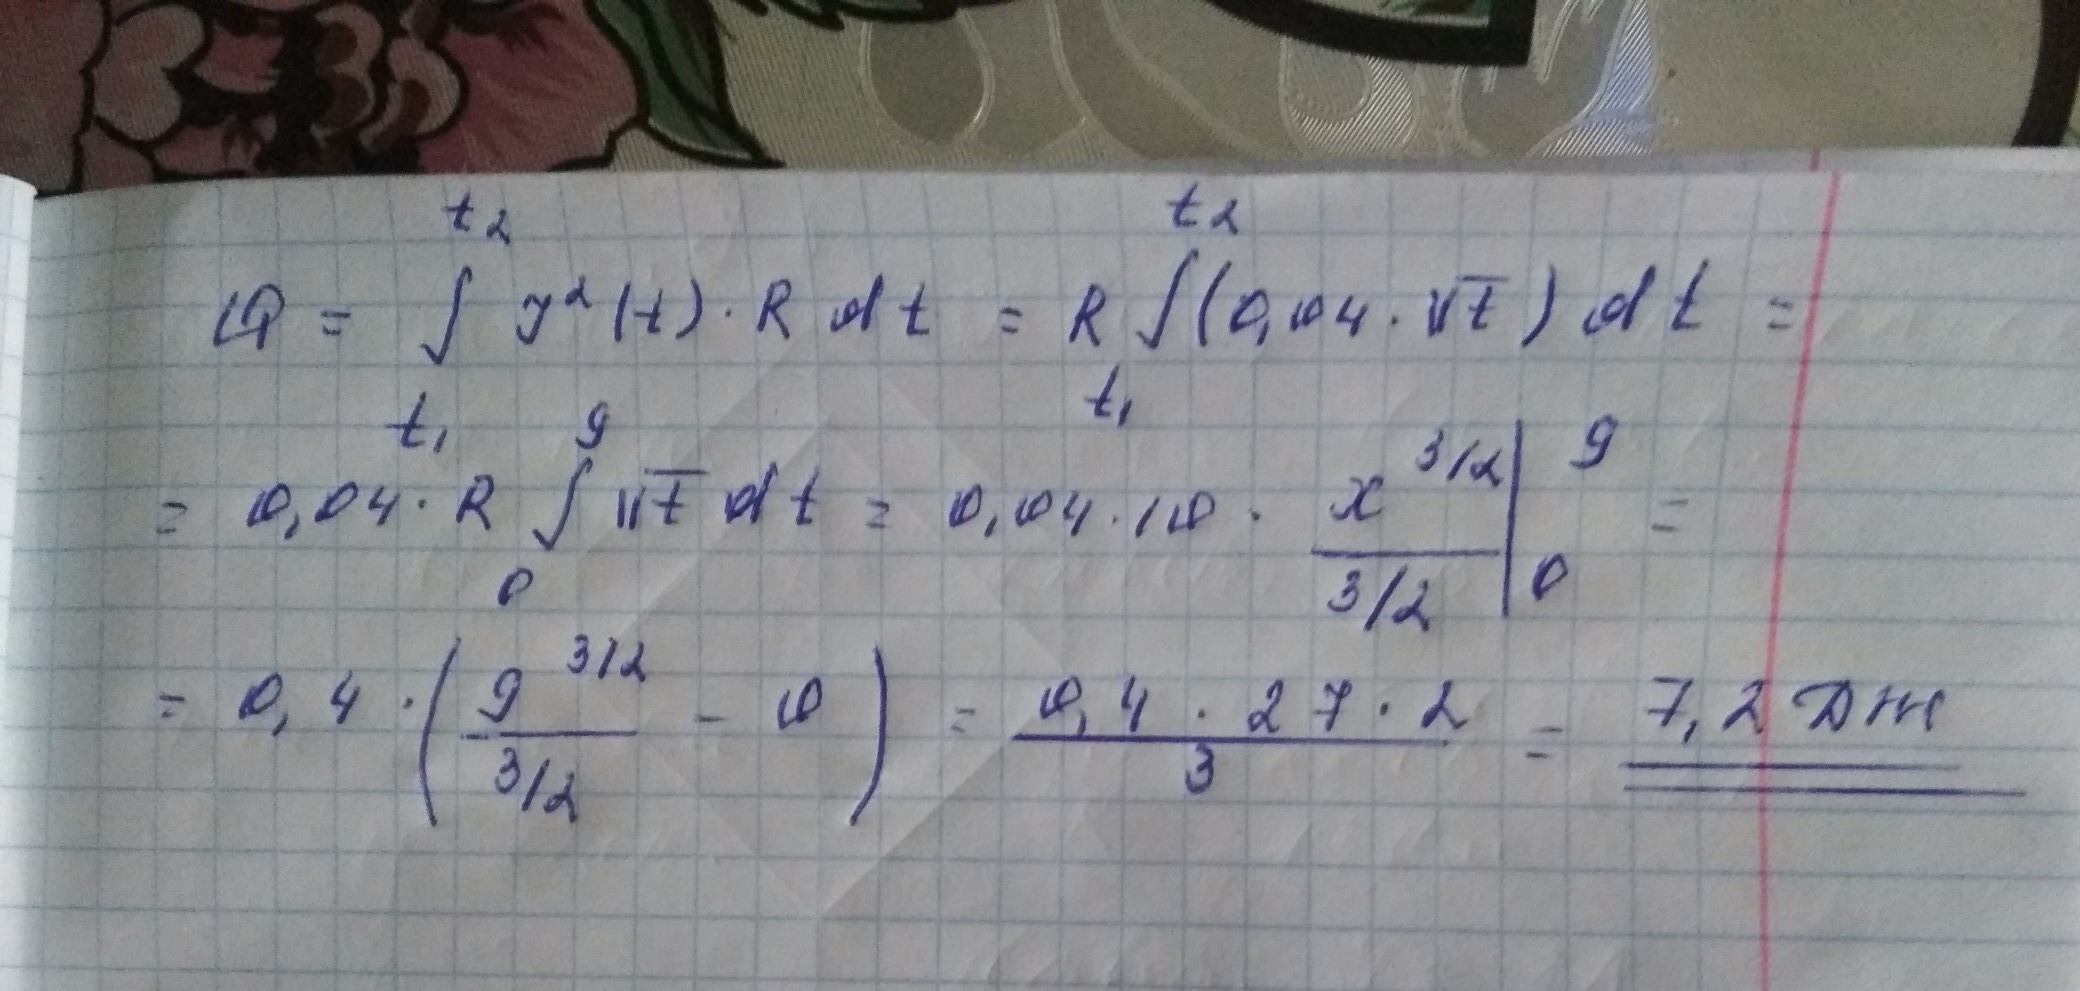 Q = ∫_{t₁}^{t₂} y²(t) · R dt = R ∫_{t₁}^{t₂} (0,04 · √t) dt =
= 0,04 · R ∫₀⁹ √t dt = 0,04 · 10 · x^{3/2}/(3/2) |₀⁹ =
= 0,4 · (9^{3/2}/(3/2) - 0) = (0,4 · 27 · 2)/3 = 7,2 Дж